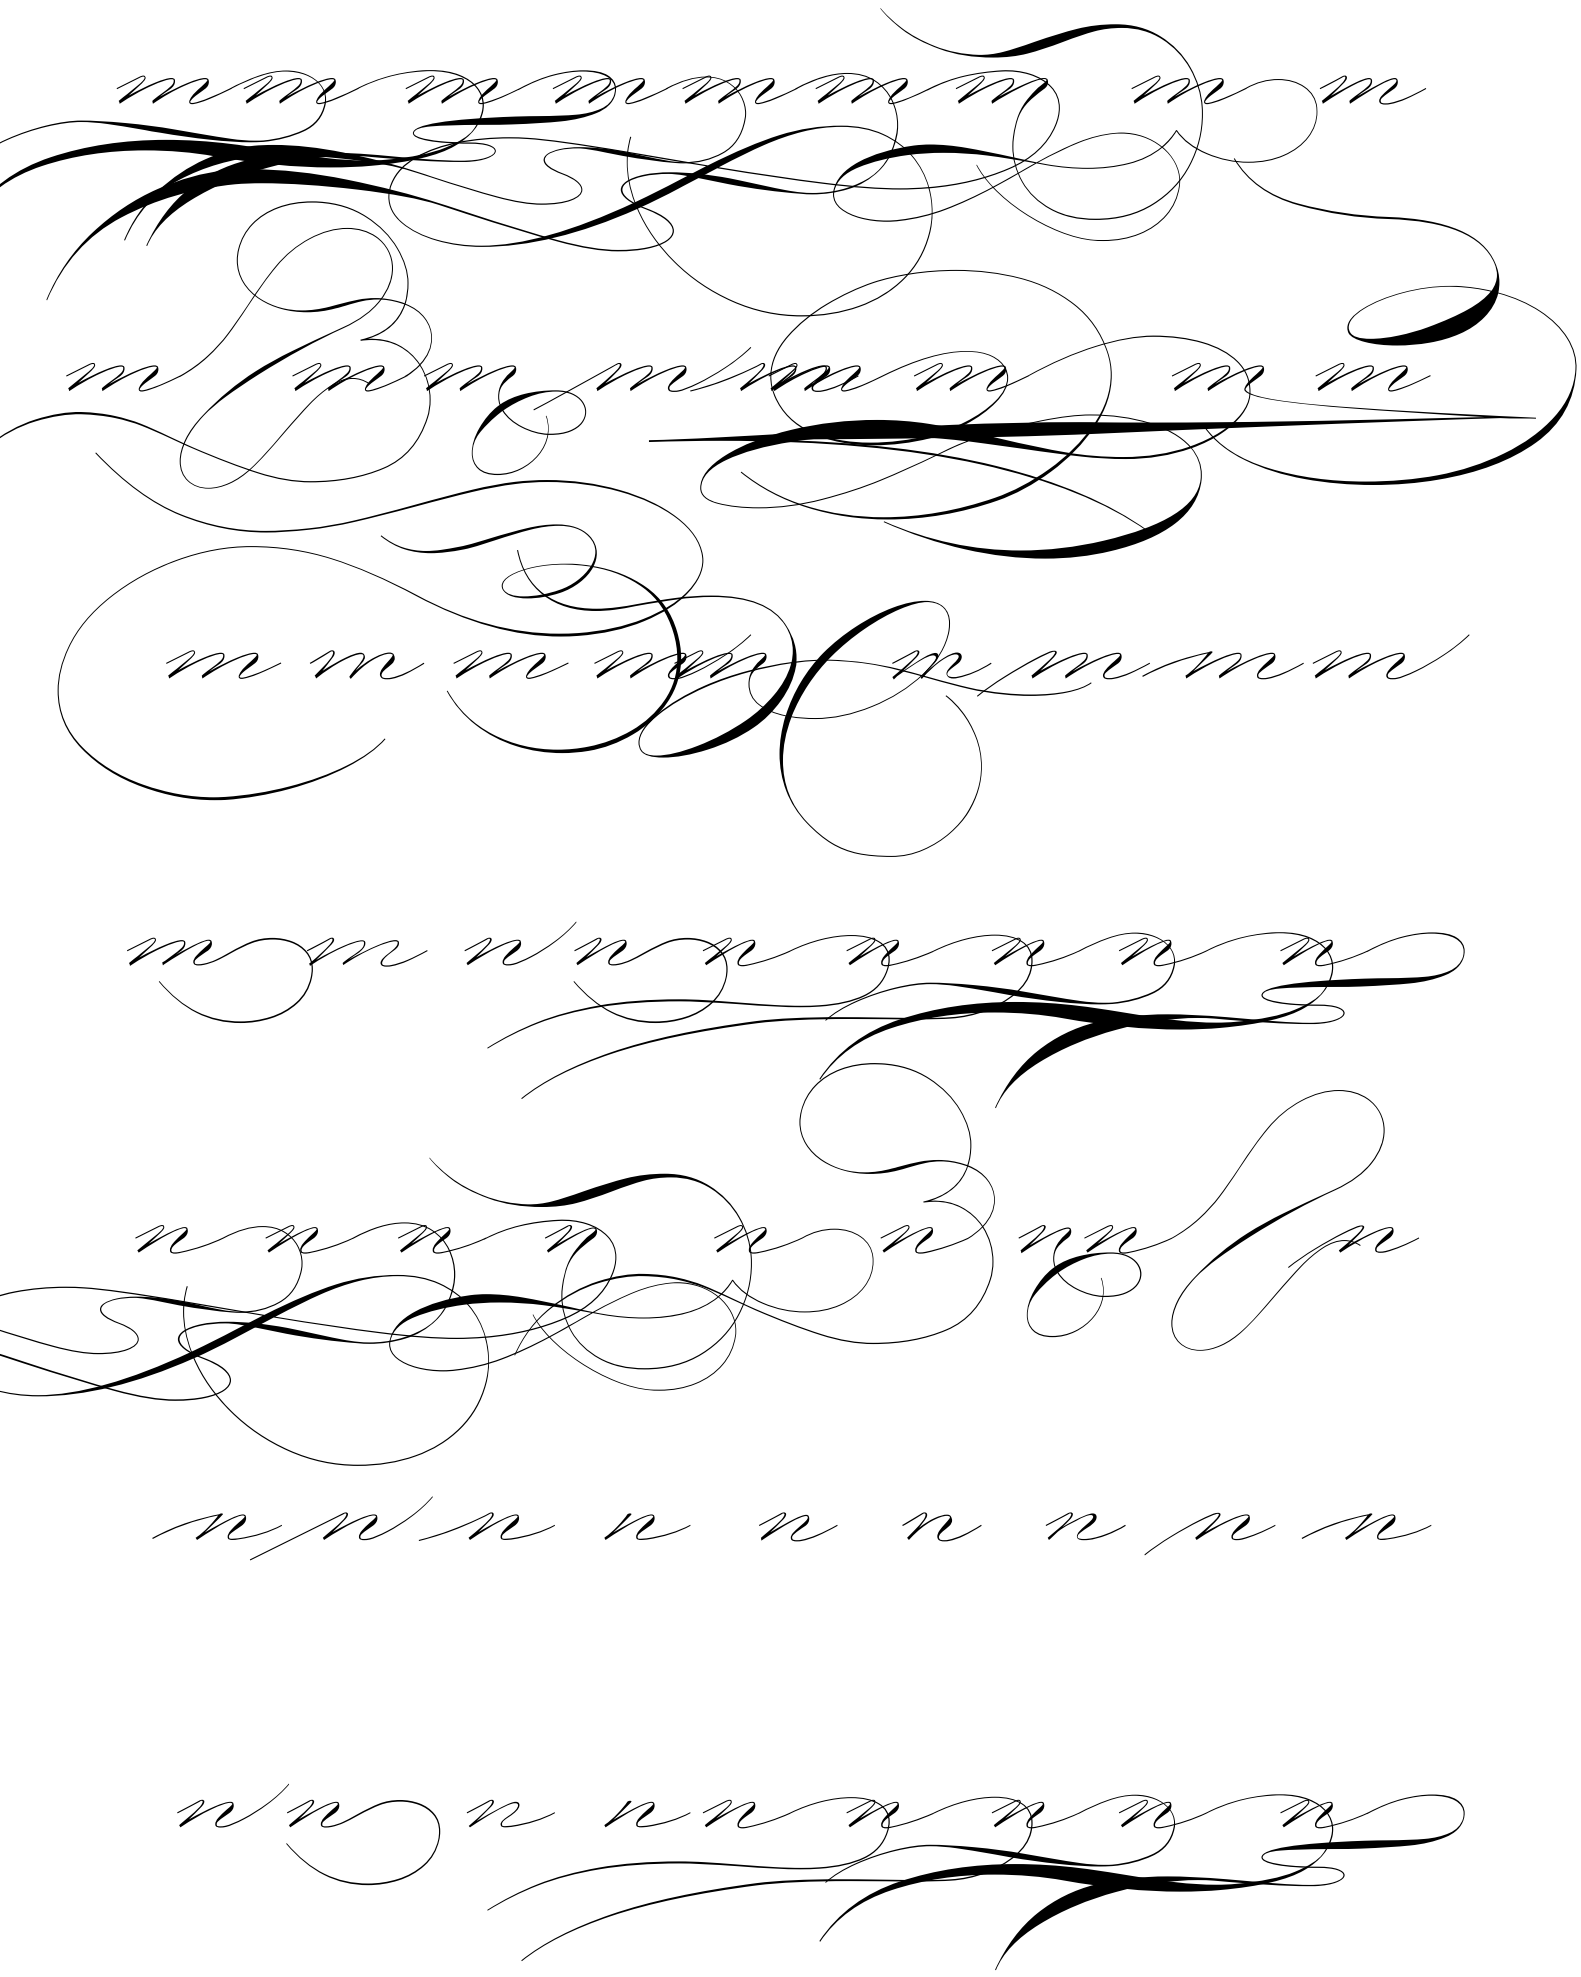 m m m m m m m m m
m m m m m m m m m
m m m m m m m m m
m m n n n n n n n
n n n n n n n n n
n n n n n n n n n
n n n n n n n n n